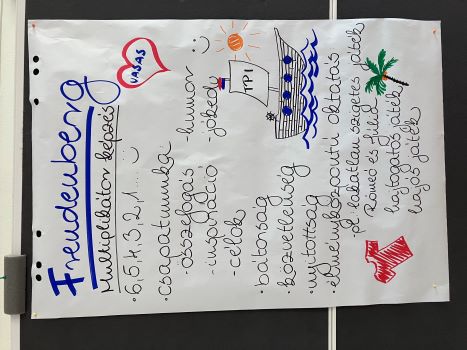 Freudenberg
Multiplikátor képzés
• 6, 5, 4, 3, 2, 1 ... :)
• csapatmunka:
- összefogás
- inspiráció
- célok
- humor
- jókedv :)
VASAS
TPI
• bátorság
• közvetlenség
• nyitottság
• élményközpontú oktatás
- pl. lakatlan szigetes játék
Rómeó és Júlia
hajtogatós játék
hajós játék